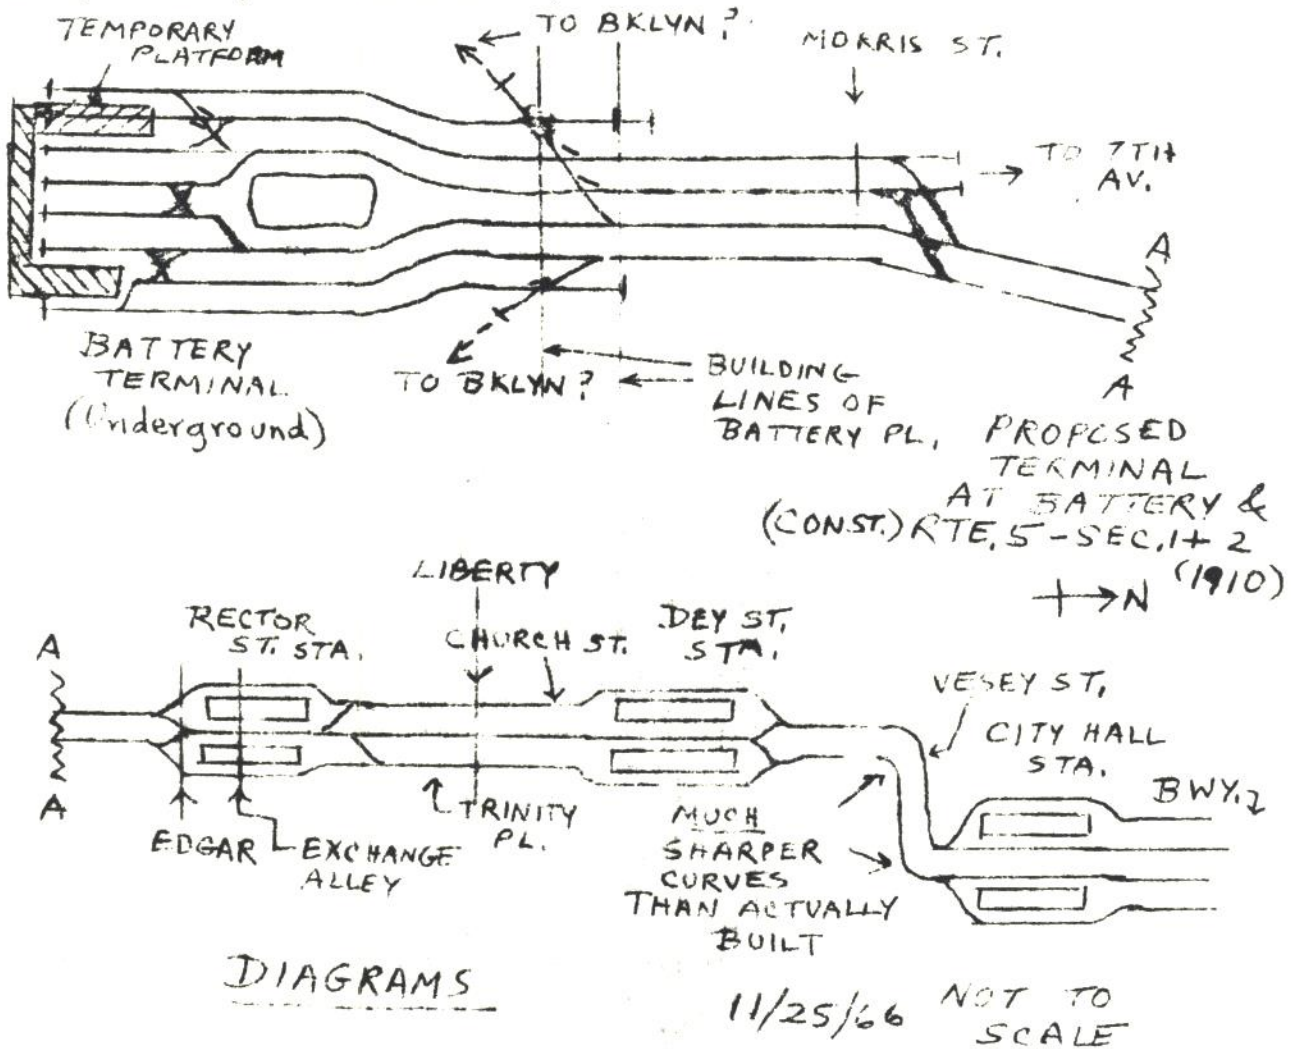 TEMPORARY
PLATFORM
TO BKLYN?
MORRIS ST.
TO 7TH
AV.
A
BATTERY
TERMINAL
(Underground)
TO BKLYN?
BUILDING
LINES OF
BATTERY PL.
A
PROPOSED
TERMINAL
AT BATTERY &
(CONST.) RTE. 5 - SEC. 1 + 2
(1910)
N
LIBERTY
RECTOR
ST. STA.
CHURCH ST.
DEY ST.
STA.
A
VESEY ST.
CITY HALL
STA.
BWY.
A
EDGAR
EXCHANGE
ALLEY
TRINITY
PL.
MUCH
SHARPER
CURVES
THAN ACTUALLY
BUILT
DIAGRAMS
11/25/66
NOT TO
SCALE